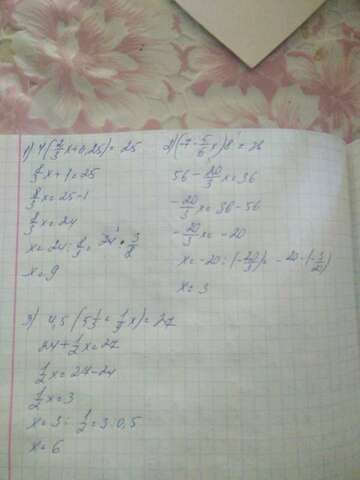 1) 4(2/3x+0,25)=25
8/3x+1=25
8/3x=25-1
8/3x=24
x=24:8/3=24·3/8
x=9
2)(-7-5/6x)8=36
56-20/3x=36
-20/3x=36-56
-20/3x=-20
x=-20:(-20/3)=-20·(-3/20)
x=3
3) 4,5(5 1/3=1/9x)=27
24+1/2x=27
1/2x=27-24
1/2x=3
x=3:1/2=3:0,5
x=6